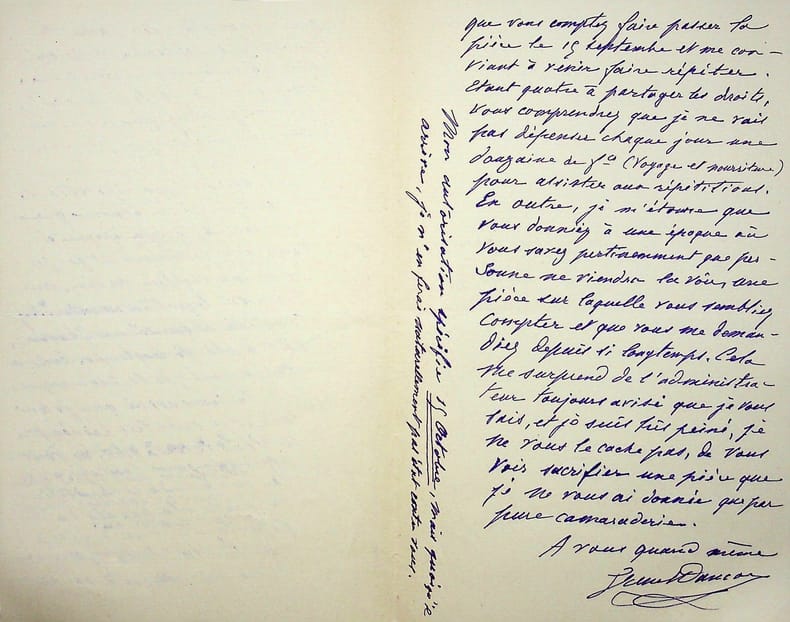 que vous comptez faire passer la
pièce le 15 septembre et me con-
viant à venir faire répéter.
Etant quatre à partager les droits,
vous comprendrez que je ne vais
pas dépenser chaque jour une
douzaine de f.cs (voyage et nourriture)
pour assister aux répétitions.
En outre, je m'étonne que
vous donniez à une époque où
vous savez pertinemment que per-
sonne ne viendra la voir, une
pièce sur laquelle vous sembliez
compter et que vous me deman-
diez depuis si longtemps. Cela
me surprend de l'administra-
teur toujours avisé que je vous
sais, et je suis très peiné, je
ne vous le cache pas, de vous
voir sacrifier une pièce que
je ne vous ai donnée que par
pure camaraderie.
A vous quand même
Mon autorisation spécifie 15 Octobre, mais quoiqu'il
arrive, je n'en ferai naturellement pas état contre vous.